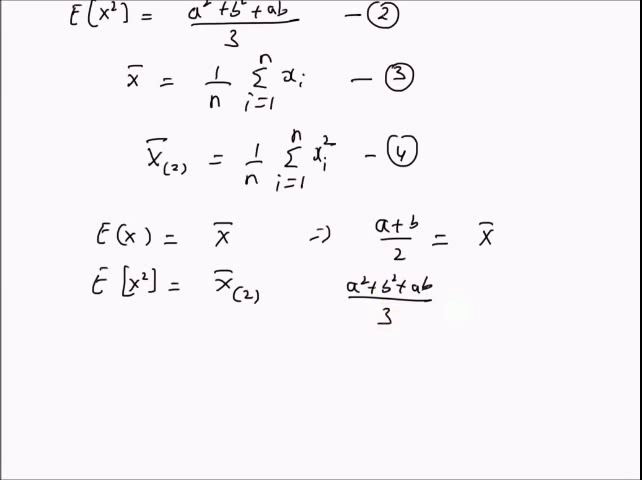 E[x²] = a² + b² + ab / 3 — ②
x̄ = 1/n Σ_{i=1}^{n} x_i — ③
X̄_(2) = 1/n Σ_{i=1}^{n} x_i² — ④
E(x) = X̄ ⇒ a+b / 2 = X̄
E[x²] = X̄_(2) a²+b²+ab / 3